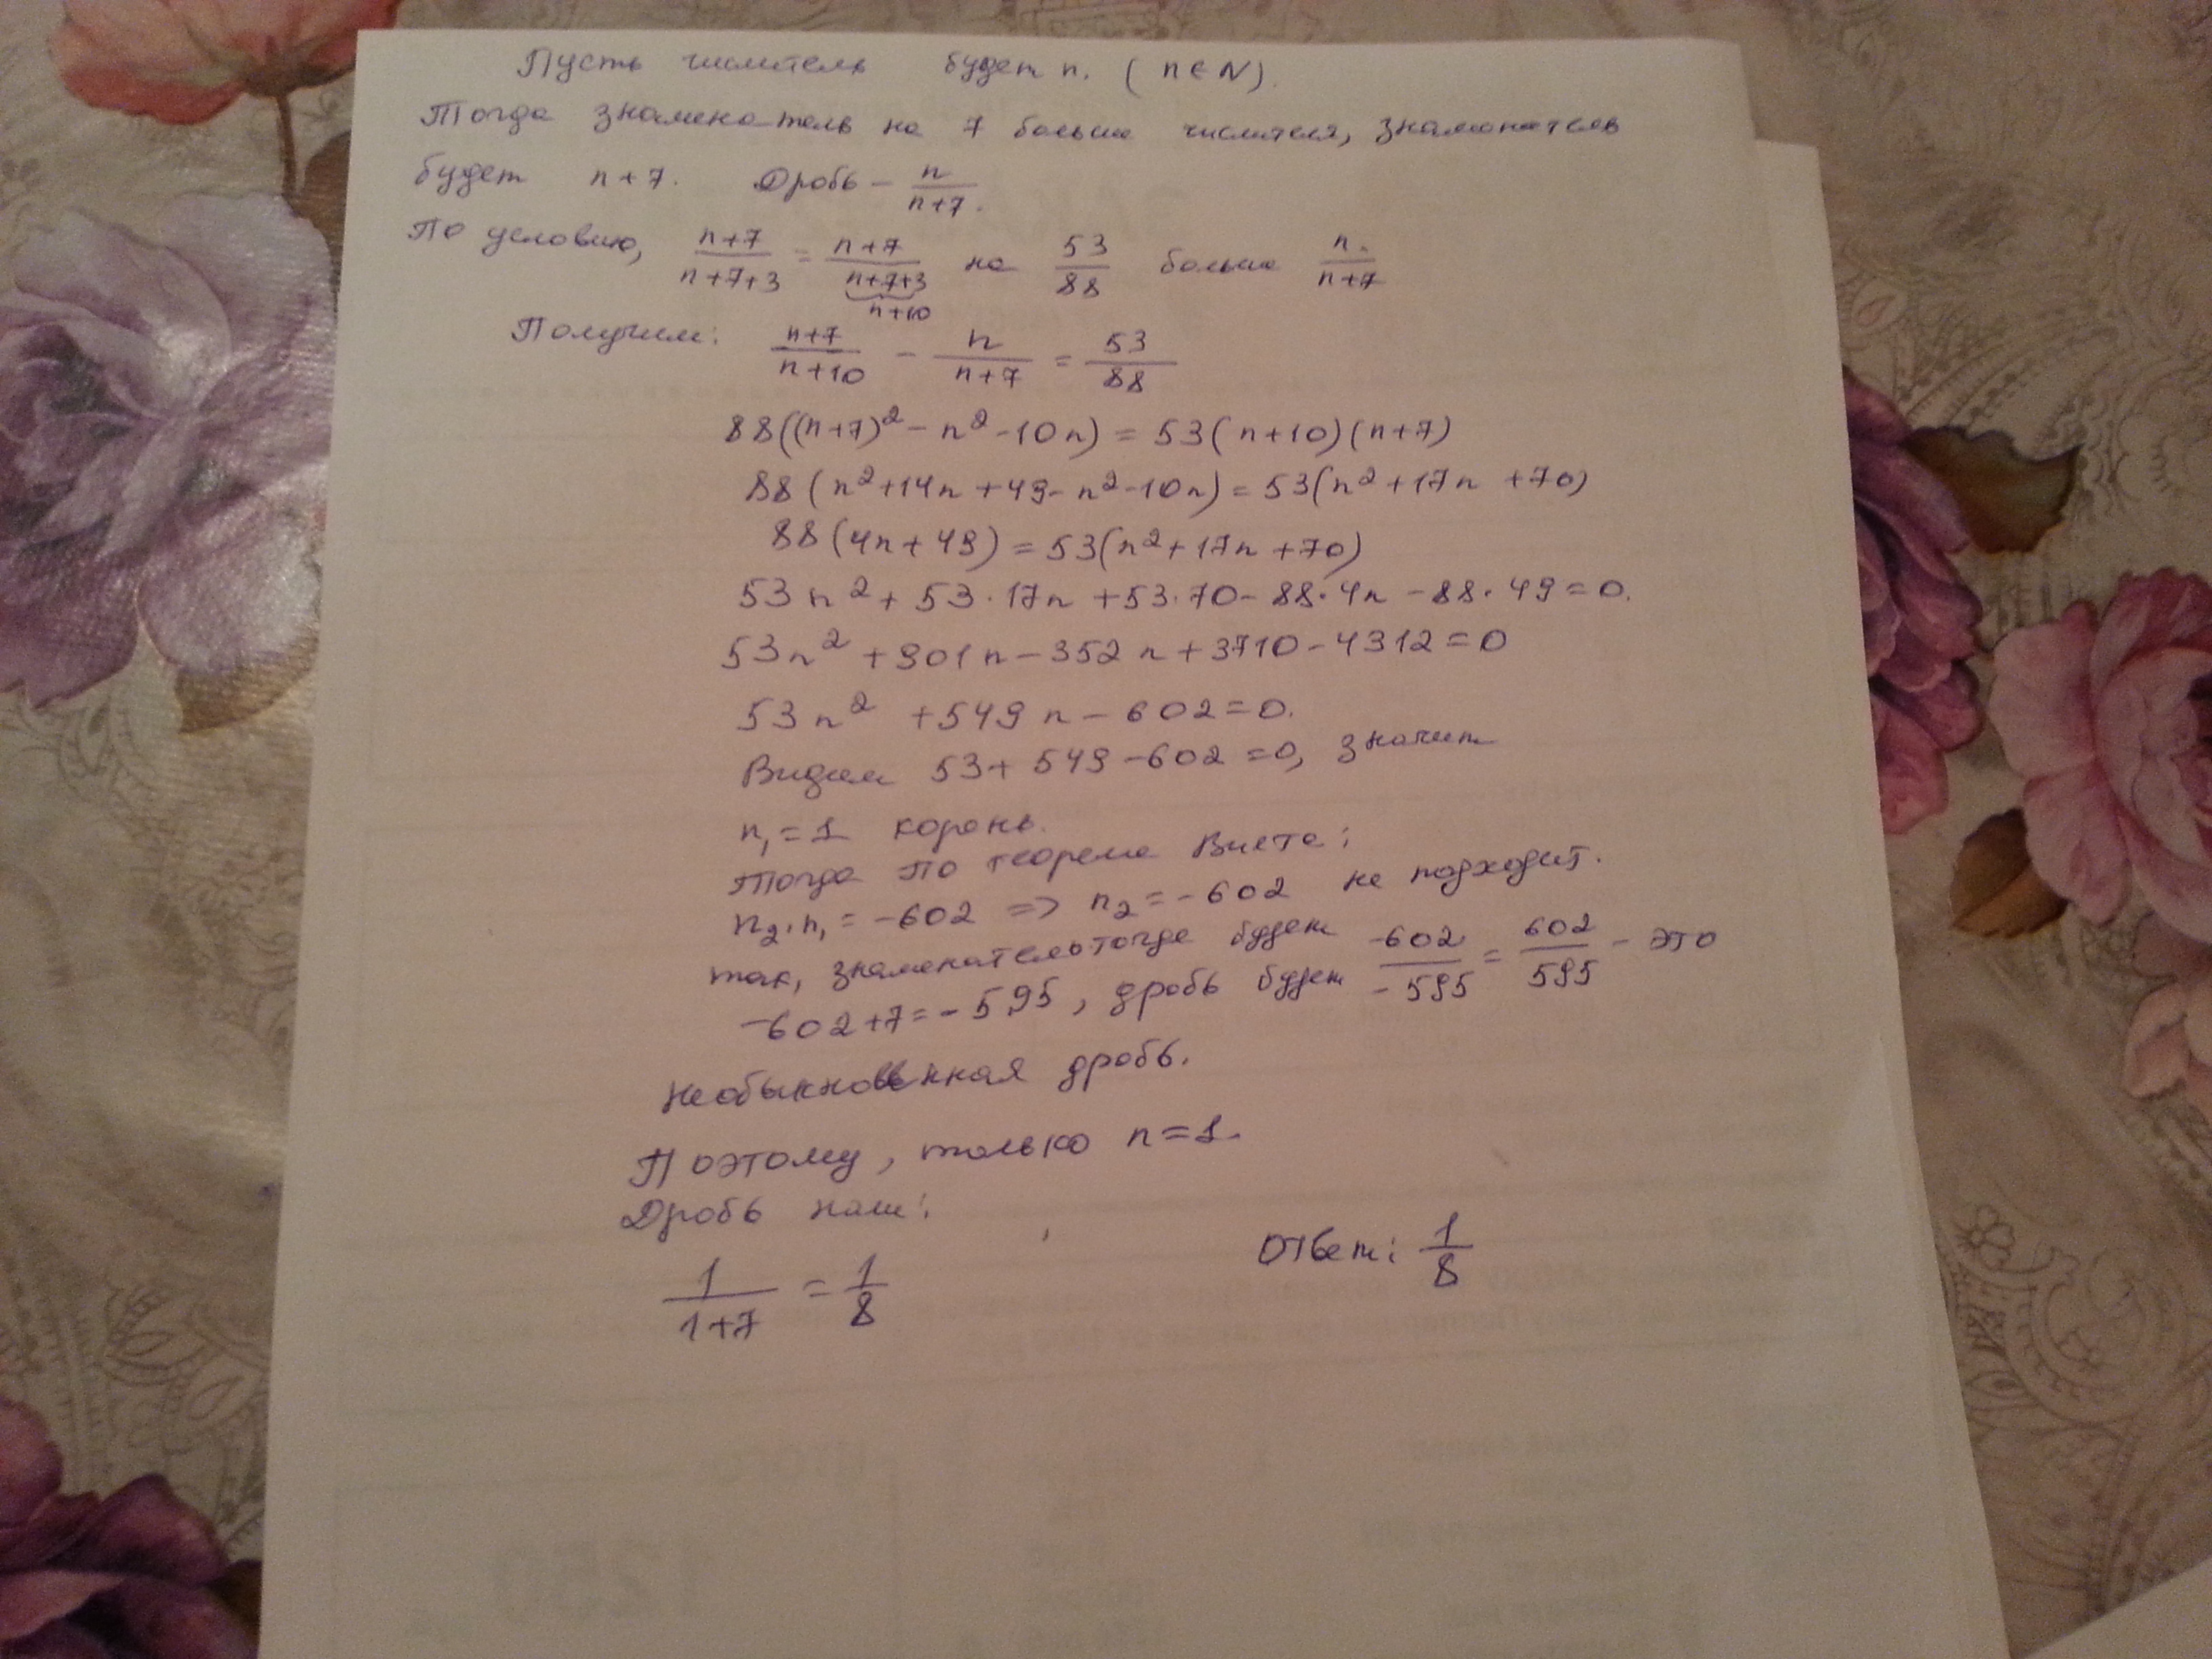 Пусть числитель будет n. (n∈N).
Тогда знаменатель на 7 больше числителя, знаменатель
будет n+7. Дробь – n/(n+7).
По условию, (n+7)/(n+7+3) = (n+7)/(n+7+3) на 53/88 больше n/(n+7)
n+10
Получим: (n+7)/(n+10) – n/(n+7) = 53/88
88((n+7)²–n²–10n) = 53(n+10)(n+7)
88(n²+14n+49–n²–10n) = 53(n²+17n+70)
88(4n+49) = 53(n²+17n+70)
53n²+53·17n+53·70–88·4n–88·49=0.
53n²+901n–352n+3710–4312=0
53n²+549n–602=0.
Видим 53+549–602=0, значит
n₁=1 корень.
Тогда по теореме Виета:
n₂·n₁=–602 => n₂=–602 не подходит.
так, знаменатель тогда будет
–602+7=–595, дробь будет –602/–595 = 602/595 – это
необыкновенная дробь.
Поэтому, только n=1.
Дробь наш:
1/(1+7) = 1/8
Ответ: 1/8